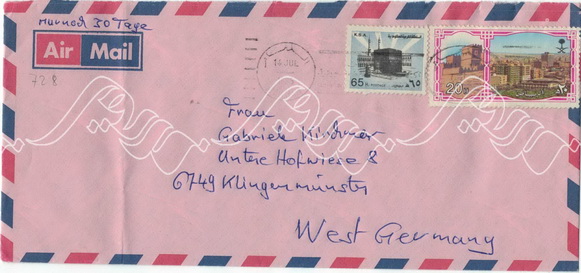 30 Tage
Air Mail
728
14 JUL
K.S.A.
65
٦٥
20
٢٠
Frau
Gabriele Kirchner
Untere Hofwiese 8
6749 Klingenmünster
West Germany